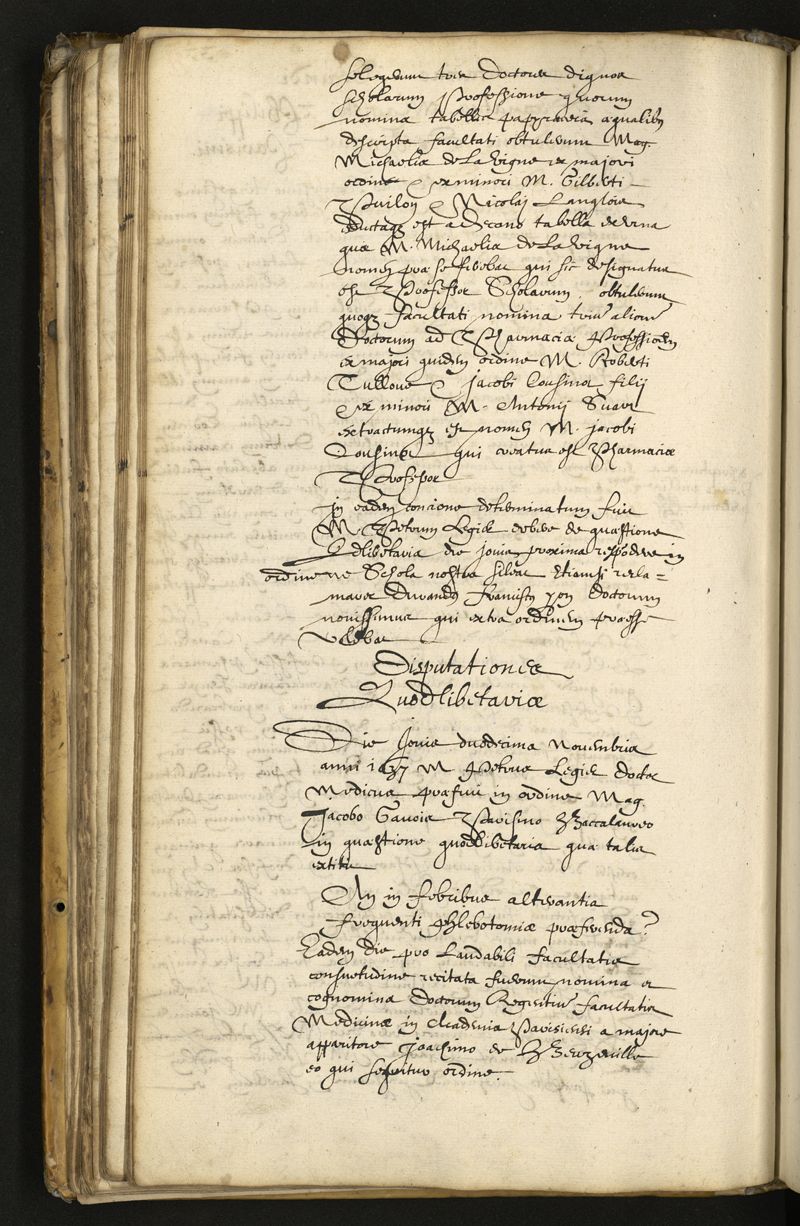 selegerunt tres Doctores dignos
scholarum Professione quorum
nomina tabellis papyraceis aequalibus
descripta facultati obtulerunt Mag.
Michaelis de La Vigne ex majori
ordine & ex minori M. Gilberti
Puilon & Nicolaj Langlois
eductaq; est a Decano tabella ex urna
quae M. Michaelis de La Vigne
nomen prae se ferebat qui sic designatus
est Professor Scholarum obtulerunt
quoq; facultati nomina trium aliorum
Doctorum ad Pharmaciae Professionem
ex majori quidem ordine M. Roberti
Tulloue & Jacobi Cousinot filij
& ex minori M. Antonij
extractumq; est nomen M. jacobi
Cousinot qui creatus est Pharmaciae
Professor
in eadem concione determinatum fuit
M. Petrum Legier debere de quaestione
Quodlibetaria die jovis proxima respondere in
ordine ne Schola nostra sileat etiamsi recla=
maret Durandus Franciscus yon Doctorum
novissimus qui extra ordinem praeesse
volebat
Disputationes
Quodlibetariae
Die Jovis duodecima Novembris
anni 1637 M Petrus Legier doctor
Medicus praefuit in ordine Mag.
Jacobo Gavois Parisino Baccalaureo
in quaestione quodlibetaria quae talis
extitit
An in febribus alterantia
frequenti phlebotomiae praeferenda?
Eadem die pro Laudabili facultatis
consuetudine recitata fuerunt nomina et
cognomina Doctorum Regentium facultatis
Medicinae in Academia Parisiensi a majore
apparitore Joachimo de Bourzeville
eo qui sequitur ordine.